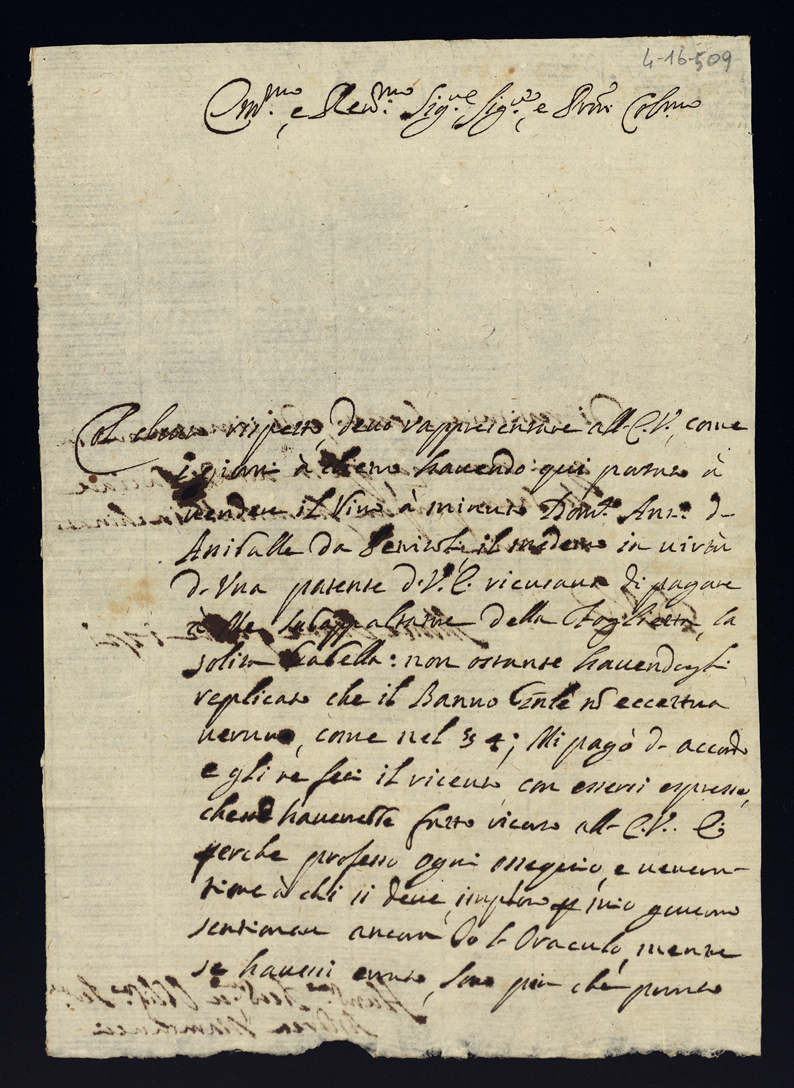 4-16-509
Em.mo e Rev.mo Sig.re Sig.re e Pron Colmo
Col rispetto devo rappresentare all' E.V. come
giorni à dietro havendo qui portato à
vendere il Vino à minuto Dom.o Ant.o d-
Anibale da il medemo in virtù
d- Una patente d- V.E. ricusava di pagare
subappaltatore della Foglietta, la
solita Gabella: non ostante havendogli
replicato che il Banno Gnle nō eccettua
veruno, come nel § 4; Mi pagò d- accordo
e gli ne feci il riceuto, con essersi espresso,
che ne haverebbe fatto ricorso all- E.V. E
perche professo ogni ossequio, e venera-
tione à chi si deve, imploro p mio governo
sentirmene ancora l- Oracolo, mentre
se havessi errato, sono più che pronto